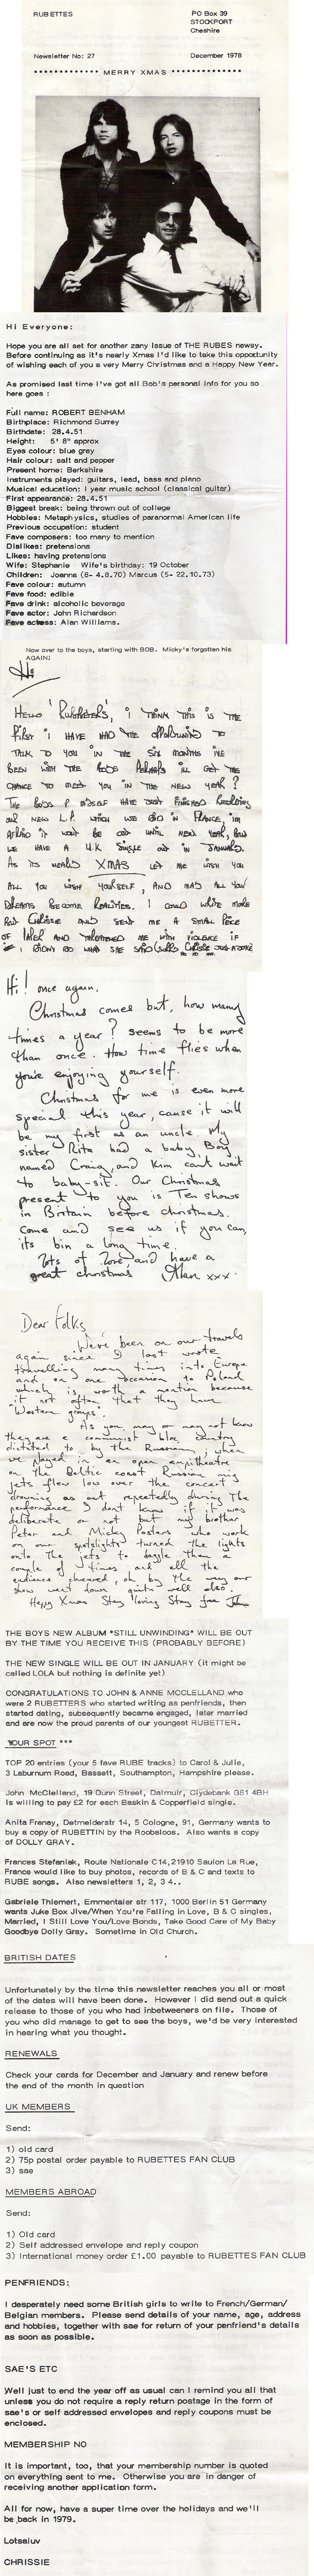 RUBETTES
PO Box 39
STOCKPORT
Cheshire
Newsletter No: 27
December 1978
************* MERRY XMAS **************
Hi Everyone:
Hope you are all set for another zany issue of THE RUBES newsy.
Before continuing as it's nearly Xmas I'd like to take this opportunity
of wishing each of you a very Merry Christmas and a Happy New Year.
As promised last time I've got all Bob's personal info for you so
here goes :
Full name: ROBERT BENHAM
Birthplace: Richmond Surrey
Birthdate: 28.4.51
Height: 5' 8" approx
Eyes colour: blue grey
Hair colour: salt and pepper
Present home: Berkshire
Instruments played: guitars, lead, bass and piano
Musical education: 1 year music school (classical guitar)
First appearance: 28.4.51
Biggest break: being thrown out of college
Hobbies: Metaphysics, studies of paranormal American life
Previous occupation: student
Fave composers: too many to mention
Dislikes: pretensions
Likes: having pretensions
Wife: Stephanie Wife's birthday: 19 October
Children: Joanna (8- 4.8.70) Marcus (5- 22.10.73)
Fave colour: autumn
Fave food: edible
Fave drink: alcoholic beverage
Fave actor: John Richardson
Fave actess: Alan Williams.
Now over to the boys, starting with BOB. Micky's forgotten his
AGAIN!
HELLO 'RUBETTERS', I THINK THIS IS THE
FIRST I HAVE HAD THE OPPORTUNITY TO
TALK TO YOU IN THE SIX MONTHS IVE
BEEN WITH THE BOYS PERHAPS ILL GET THE
CHANCE TO MEET YOU IN THE NEW YEAR?
THE BOYS & MYSELF HAVE JUST FINISHED RECORDING
OUR NEW L.P. WHICH WE DID IN FRANCE, IM
AFRAID IT WONT BE OUT UNTIL NEW YEAR, BUT
WE HAVE A U.K SINGLE OUT IN JANUARY.
AS ITS NEARLY XMAS LET ME WISH YOU
ALL YOU WISH YOURSELF, AND MAY ALL YOUR
DREAMS BECOME REALITIES. I COULD WRITE MORE
BUT CHRISSIE ONLY SENT ME A SMALL PIECE
OF PAPER AND THREATENED ME WITH VIOLENCE IF
I DIDNT DO WHAT SHE SAID (SORRY CHRISSIE JUST A JOKE
Hi! once again.
Christmas comes but, how many
times a year? Seems to be more
than once. How time flies when
you're enjoying yourself.
Christmas for me is even more
special this year, cause it will
be my first as an uncle. My
sister Rita had a baby Boy
named Craig, and Kim cant wait
to baby-sit. Our Christmas
present to you is Ten shows
in Britain before christmas.
Come and see us if you can,
its bin a long time.
Lots of Love, and have a
great christmas Alan xxx.
Dear Folks
We've been on our travels
again since I last wrote
travelling many times into Europe
and on one occasion to Poland
which is worth a mention because
it not often that they have
"Western groups".
As you may or may not know
they are a communist bloc country
dictated to by the Russians, when
we played in an open ampitheatre
on the Baltic coast Russian mig
jets flew low over the concert
drowning us out repeatedly during the
performance I dont know if it was
deliberate or not but my brother
Peter and Mickey Posters who work
on our spotlights turned the lights
onto the jets to dazzle them a
couple of times and all the
audience cheered, oh by the way our
show went down quite well also.
Happy Xmas Stay loving Stay free John
THE BOYS NEW ALBUM "STILL UNWINDING" WILL BE OUT
BY THE TIME YOU RECEIVE THIS (PROBABLY BEFORE)
THE NEW SINGLE WILL BE OUT IN JANUARY (it might be
called LOLA but nothing is definite yet)
CONGRATULATIONS TO JOHN & ANNE MCCLELLAND who
were 2 RUBETTERS who started writing as penfriends, then
started dating, subsequently became engaged, later married
and are now the proud parents of our youngest RUBETTER.
YOUR SPOT ***
TOP 20 entries (your 5 fave RUBE tracks) to Carol & Julie,
3 Laburnum Road, Bassett, Southampton, Hampshire please.
John McClelland, 19 Dunn Street, Dalmuir, Clydebank G81 4BH
is willing to pay £2 for each Baskin & Copperfield single.
Anita Frenay, Detmelderstr 14, 5 Cologne, 91, Germany wants to
buy a copy of RUBETTIN by the Roobaloos. Also wants a copy
of DOLLY GRAY.
Frances Stefaniak, Route Nationale C14, 21910 Saulon La Rue,
France would like to buy photos, records of B & C and texts to
RUBE songs. Also newsletters 1, 2, 3 4..
Gabriele Thiemert, Emmentaler str 117, 1000 Berlin 51 Germany
wants Juke Box Jive/When You're Falling in Love, B & C singles,
Married, I Still Love You/Love Bonds, Take Good Care of My Baby
Goodbye Dolly Gray. Sometime in Old Church.
BRITISH DATES
Unfortunately by the time this newsletter reaches you all or most
of the dates will have been done. However I did send out a quick
release to those of you who had inbetweeners on file. Those of
you who did manage to get to see the boys, we'd be very interested
in hearing what you thought.
RENEWALS
Check your cards for December and January and renew before
the end of the month in question
UK MEMBERS
Send:
1) old card
2) 75p postal order payable to RUBETTES FAN CLUB
3) sae
MEMBERS ABROAD
Send:
1) Old card
2) Self addressed envelope and reply coupon
3) International money order £1.00 payable to RUBETTES FAN CLUB
PENFRIENDS:
I desperately need some British girls to write to French/German/
Belgian members. Please send details of your name, age, address
and hobbies, together with sae for return of your penfriend's details
as soon as possible.
SAE'S ETC
Well just to end the year off as usual can I remind you all that
unless you do not require a reply return postage in the form of
sae's or self addressed envelopes and reply coupons must be
enclosed.
MEMBERSHIP NO
It is important, too, that your membership number is quoted
on everything sent to me. Otherwise you are in danger of
receiving another application form.
All for now, have a super time over the holidays and we'll
be back in 1979.
Lotsaluv
CHRISSIE